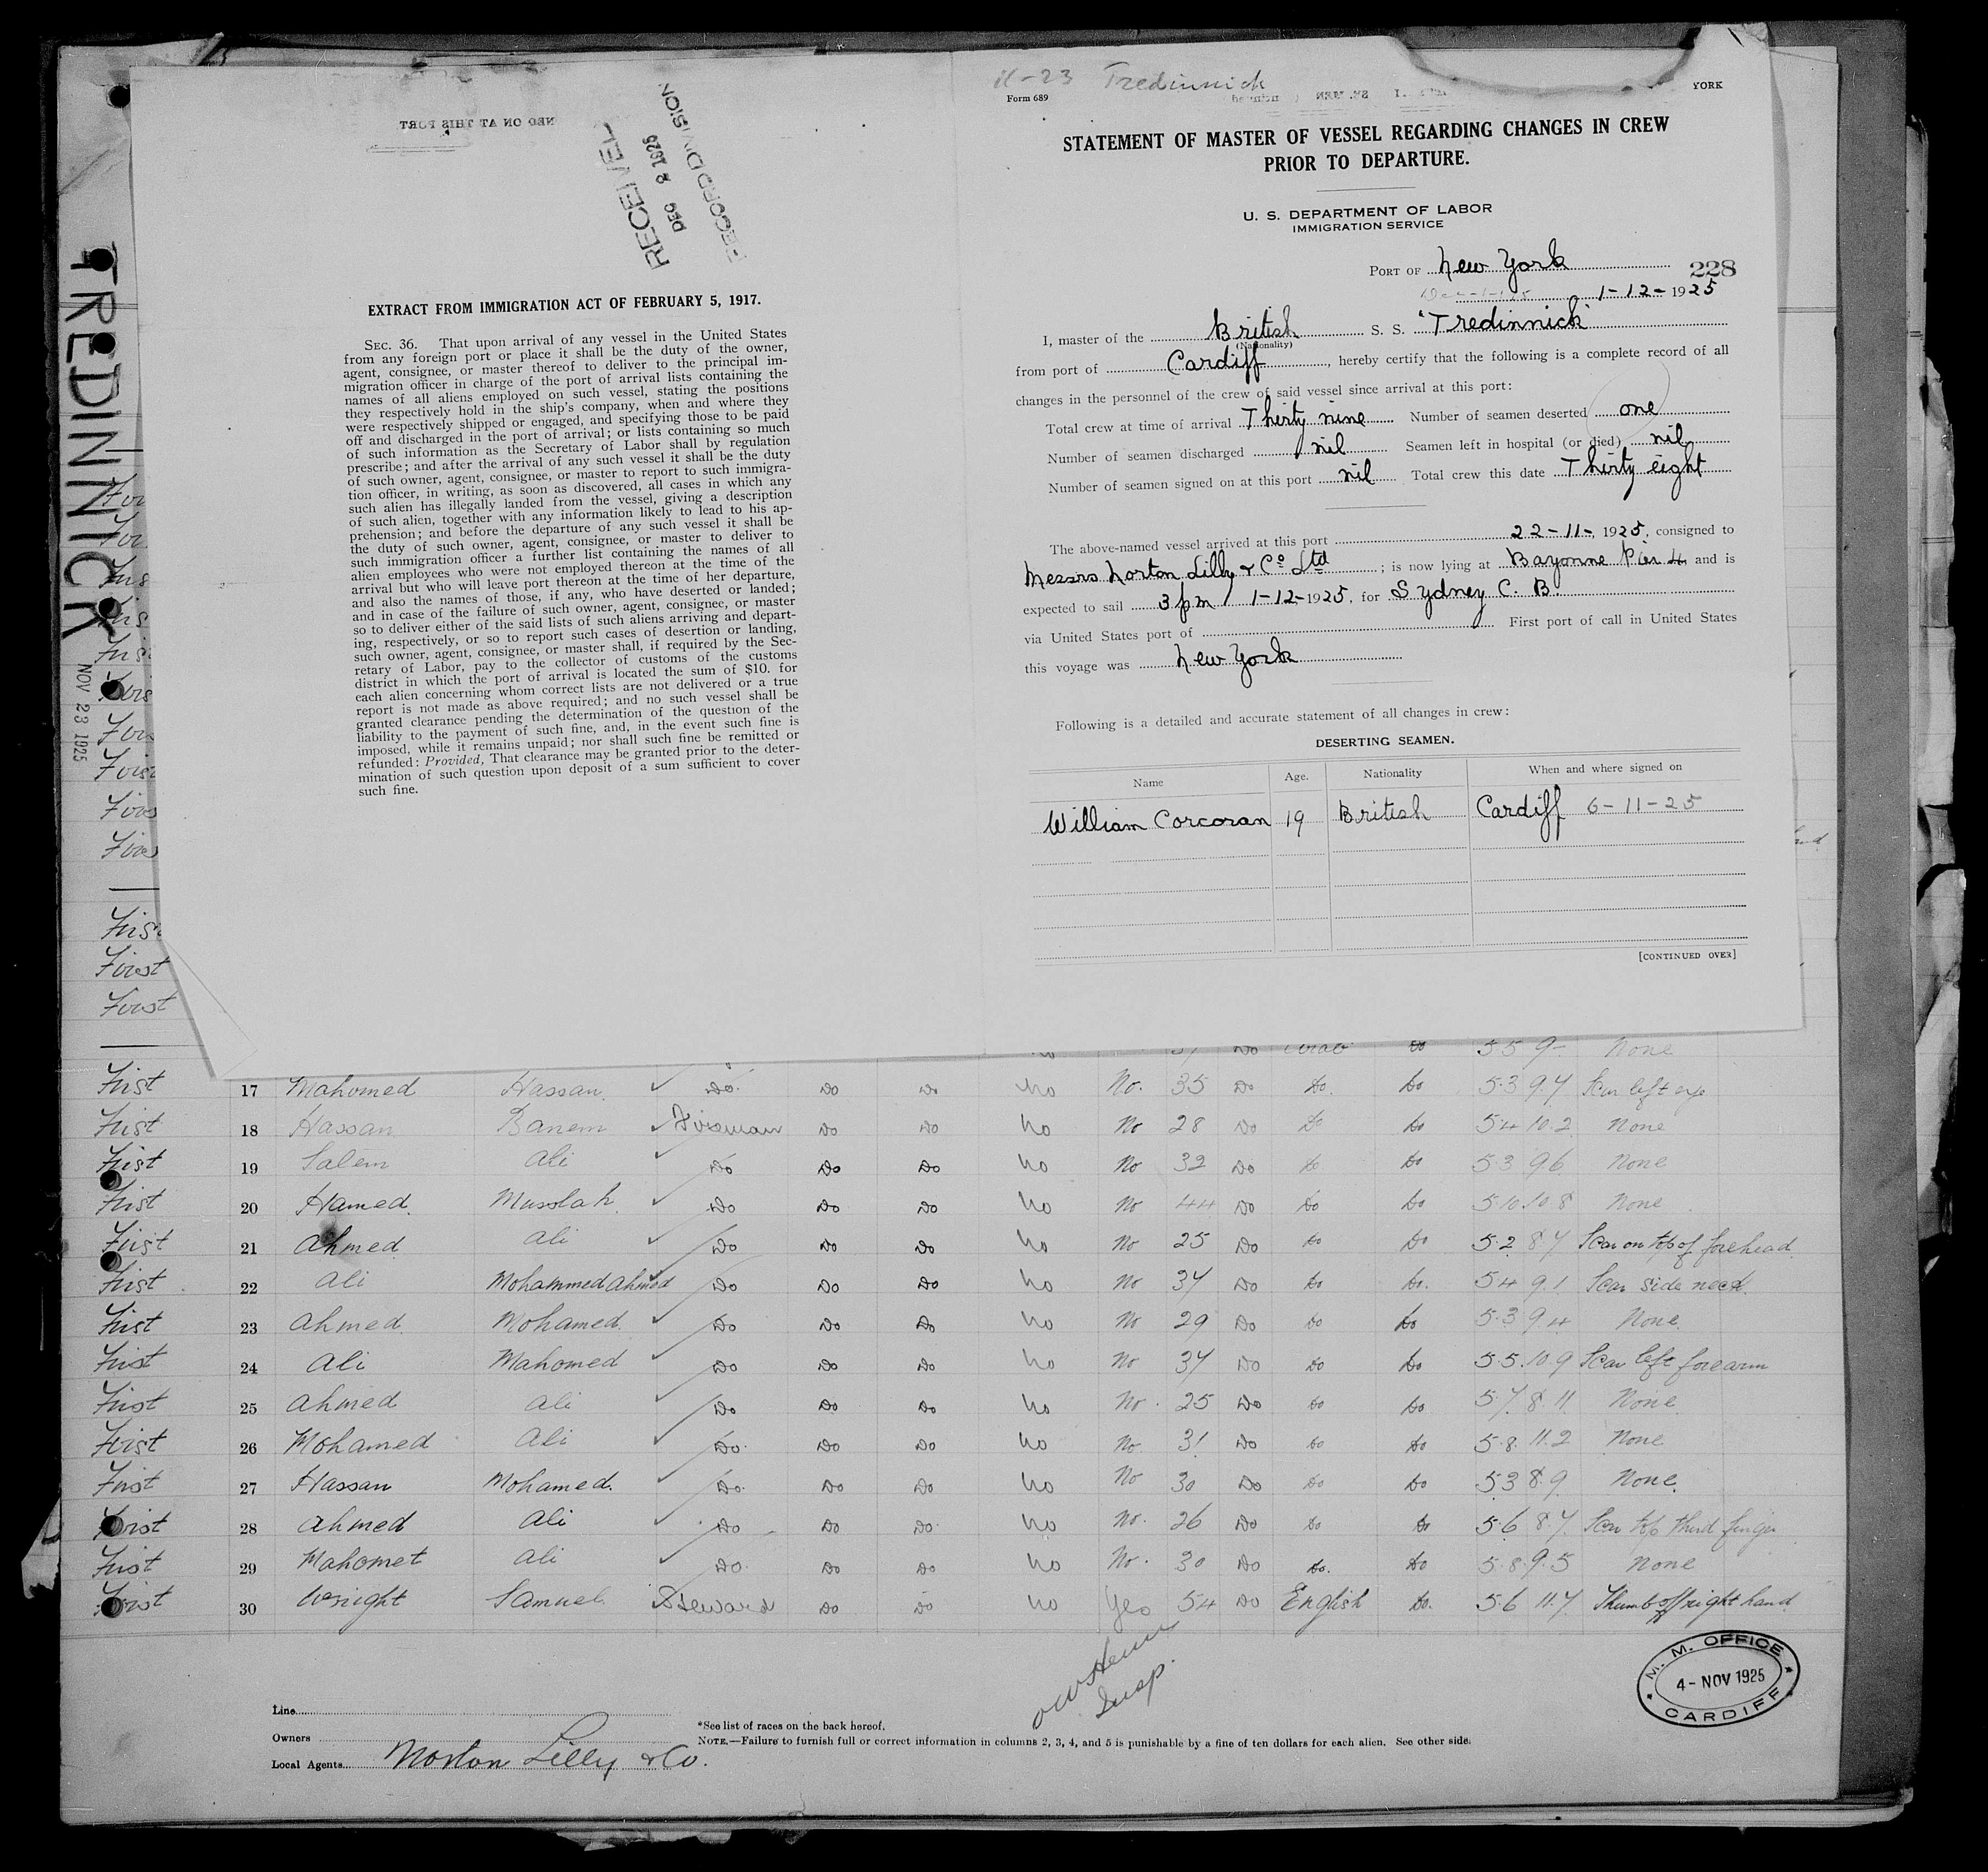 TREDINNICK
NOV 23 1925
NED ON AT THIS PORT
RECEIVED
DEC 8 1925
RECORD DIVISION
EXTRACT FROM IMMIGRATION ACT OF FEBRUARY 5, 1917.
SEC. 36. That upon arrival of any vessel in the United States
from any foreign port or place it shall be the duty of the owner,
agent, consignee, or master thereof to deliver to the principal im-
migration officer in charge of the port of arrival lists containing the
names of all aliens employed on such vessel, stating the positions
they respectively hold in the ship's company, when and where they
were respectively shipped or engaged, and specifying those to be paid
off and discharged in the port of arrival; or lists containing so much
of such information as the Secretary of Labor shall by regulation
prescribe; and after the arrival of any such vessel it shall be the duty
of such owner, agent, consignee, or master to report to such immigra-
tion officer, in writing, as soon as discovered, all cases in which any
such alien has illegally landed from the vessel, giving a description
of such alien, together with any information likely to lead to his ap-
prehension; and before the departure of any such vessel it shall be
the duty of such owner, agent, consignee, or master to deliver to
such immigration officer a further list containing the names of all
alien employees who were not employed thereon at the time of the
arrival but who will leave port thereon at the time of her departure,
and also the names of those, if any, who have deserted or landed;
and in case of the failure of such owner, agent, consignee, or master
so to deliver either of the said lists of such aliens arriving and depart-
ing, respectively, or so to report such cases of desertion or landing,
such owner, agent, consignee, or master shall, if required by the Sec-
retary of Labor, pay to the collector of customs of the customs
district in which the port of arrival is located the sum of $10. for
each alien concerning whom correct lists are not delivered or a true
report is not made as above required; and no such vessel shall be
granted clearance pending the determination of the question of the
liability to the payment of such fine, and, in the event such fine is
imposed, while it remains unpaid; nor shall such fine be remitted or
refunded: Provided, That clearance may be granted prior to the deter-
mination of such question upon deposit of a sum sufficient to cover
such fine.
11-23 Tredinnick
Form 689
YORK
STATEMENT OF MASTER OF VESSEL REGARDING CHANGES IN CREW
PRIOR TO DEPARTURE.
U. S. DEPARTMENT OF LABOR
IMMIGRATION SERVICE
PORT OF New York
228
1-12-1925
I, master of the British S. S. "Tredinnick"
(Nationality)
from port of Cardiff, hereby certify that the following is a complete record of all
changes in the personnel of the crew of said vessel since arrival at this port:
Total crew at time of arrival Thirty nine Number of seamen deserted one
Number of seamen discharged nil Seamen left in hospital (or died) nil
Number of seamen signed on at this port nil Total crew this date Thirty eight
The above-named vessel arrived at this port 22-11-1925, consigned to
Messrs Norton Lilly & Co Ltd; is now lying at Bayonne Pier 4 and is
expected to sail 3 pm 1-12-1925, for Sydney C. B.
via United States port of First port of call in United States
this voyage was New York
Following is a detailed and accurate statement of all changes in crew:
DESERTING SEAMEN.
Name Age. Nationality When and where signed on
William Corcoran 19 British Cardiff 6-11-25
[CONTINUED OVER]
Do Arab Do 5 5 9 - None
First 17 Mahomed Hassan Do. Do Do No No. 35 Do Do. Do 5.3 9.7 Scar left eye
First 18 Hassan Banem Fireman Do Do No No 28 Do Do Do 5 4 10.2 None
First 19 Salem Ali Do Do Do No No 32 Do Do Do 5 3 9 6 None
First 20 Hamed Musolah Do Do Do No No 44 Do Do Do 5.10.10 8 None
First 21 Ahmed Ali Do Do Do No No 25 Do Do Do 5.2 8 7 Scar on top of forehead
First 22 Ali Mohammed Ahmed Do Do Do No No 37 Do Do Do. 5 4 9.1 Scar side neck
First 23 Ahmed Mohamed Do Do Do No No 29 Do Do Do 5.3 9 4 None
First 24 Ali Mahomed Do Do Do No No 37 Do Do Do 5.5.10.9 Scar left forearm
First 25 Ahmed Ali Do Do Do No No. 25 Do Do Do 5.7 8 11 None
First 26 Mohamed Ali Do. Do Do No No 31 Do Do Do 5.8. 11.2 None
First 27 Hassan Mohamed. Do. Do Do No No 30 Do Do Do 5 3 8.9 None
First 28 Ahmed Ali Do Do Do No No. 26 Do Do Do 5.6 8.7 Scar top third finger
First 29 Mahomet Ali Do. Do Do No No. 30 Do Do. Do 5.8.9.5 None
First 30 Wright Samuel Steward Do Do No Yes 54 Do English Do. 5.6 11.7 Thumb off right hand
Insp.
M. M. OFFICE
4- NOV 1925
CARDIFF
Line
*See list of races on the back hereof.
Owners
NOTE.—Failure to furnish full or correct information in columns 2, 3, 4, and 5 is punishable by a fine of ten dollars for each alien. See other side.
Local Agents Norton Lilly & Co.